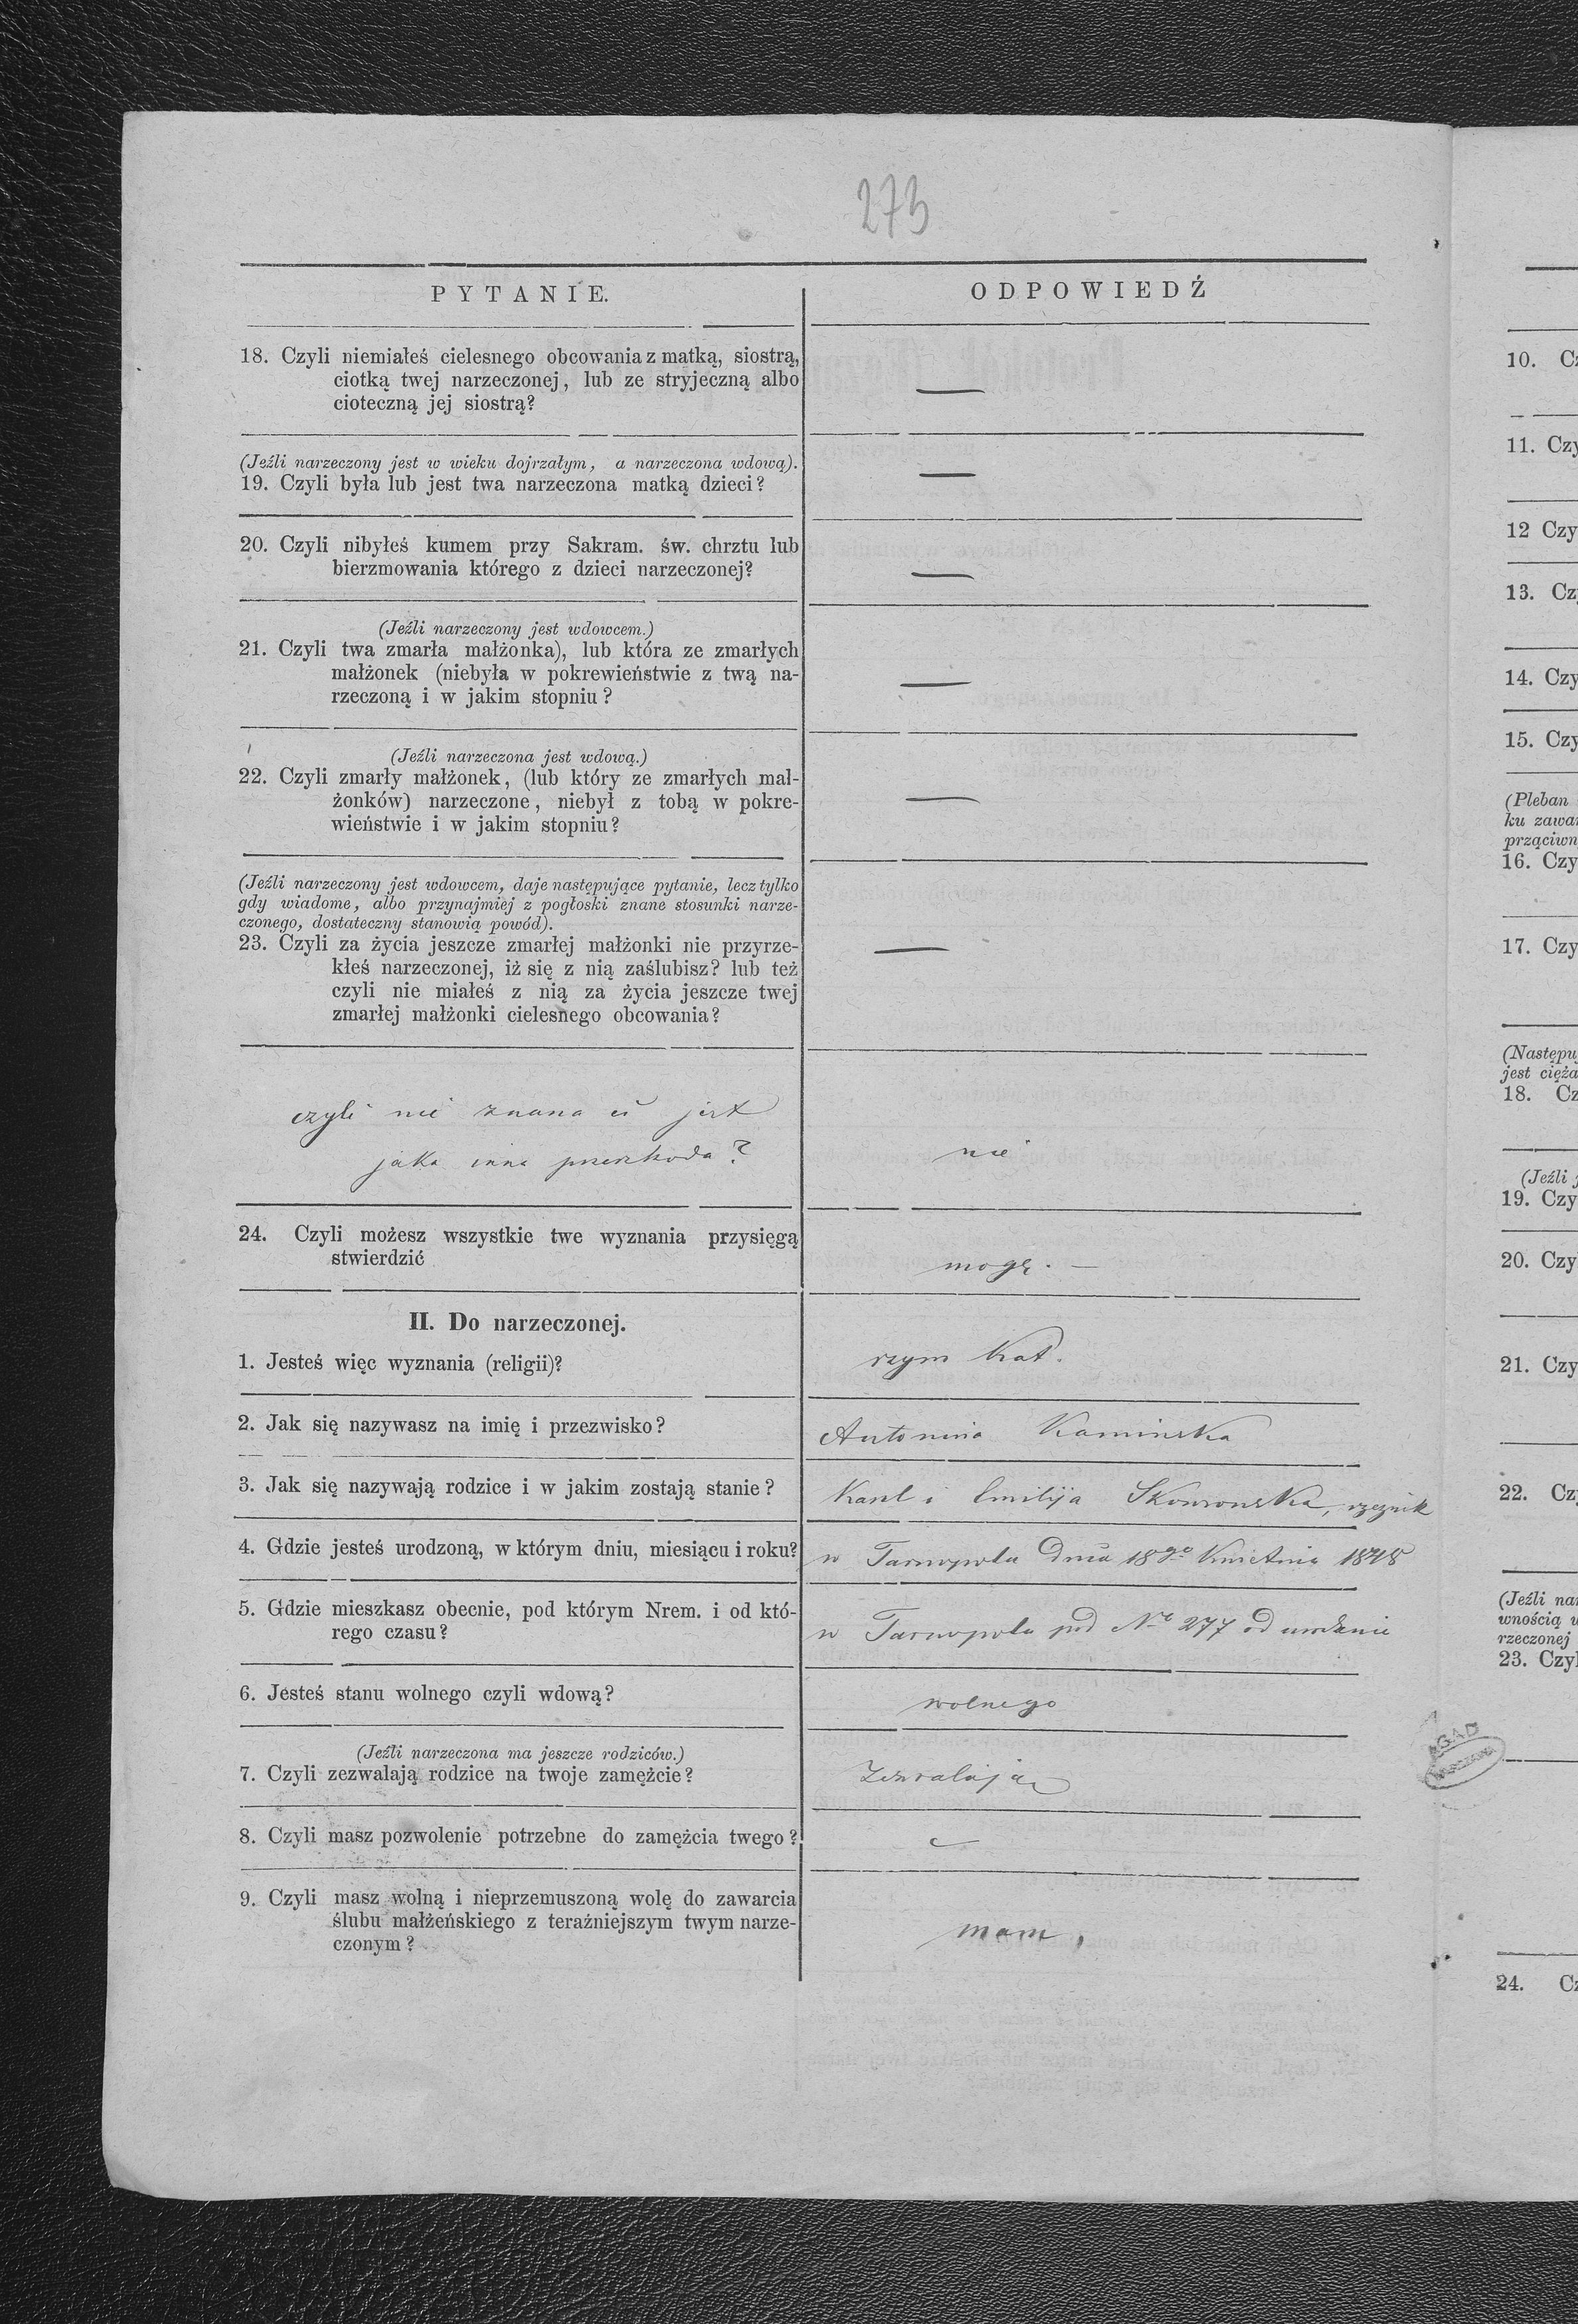 273
PYTANIE.
ODPOWIEDŹ
18. Czyli niemiałeś cielesnego obcowania z matką, siostrą,
ciotką twej narzeczonej, lub ze stryjeczną albo
cioteczną jej siostrą?
—
(Jeźli narzeczony jest w wieku dojrzałym, a narzeczona wdową).
19. Czyli była lub jest twa narzeczona matką dzieci?
—
20. Czyli nibyłeś kumem przy Sakram. św. chrztu lub
bierzmowania którego z dzieci narzeczonej?
—
(Jeźli narzeczony jest wdowcem.)
21. Czyli twa zmarła małżonka), lub która ze zmarłych
małżonek (niebyła w pokrewieństwie z twą na-
rzeczoną i w jakim stopniu?
—
(Jeźli narzeczona jest wdową.)
22. Czyli zmarły małżonek, (lub który ze zmarłych mał-
żonków) narzeczone, niebył z tobą w pokre-
wieństwie i w jakim stopniu?
—
(Jeźli narzeczony jest wdowcem, daje następujące pytanie, lecz tylko
gdy wiadome, albo przynajmiej z pogłoski znane stosunki narze-
czonego, dostateczny stanowią powód).
23. Czyli za życia jeszcze zmarłej małżonki nie przyrze-
kłeś narzeczonej, iż się z nią zaślubisz? lub też
czyli nie miałeś z nią za życia jeszcze twej
zmarłej małżonki cielesnego obcowania?
—
czyli nie znana ci jest
jaka inna przeszkoda?
nie
24. Czyli możesz wszystkie twe wyznania przysięgą
stwierdzić
mogę. —
II. Do narzeczonej.
1. Jesteś więc wyznania (religii)?
rzym kat.
2. Jak się nazywasz na imię i przezwisko?
Antonina Kaminska
3. Jak się nazywają rodzice i w jakim zostają stanie?
Karol i Emilija Skowronska, rzeznik
4. Gdzie jesteś urodzoną, w którym dniu, miesiącu i roku?
w Tarnopolu dnia 18go Kwietnia 1848
5. Gdzie mieszkasz obecnie, pod którym Nrem. i od któ-
rego czasu?
w Tarnopolu pod No 277 od urodzenie
6. Jesteś stanu wolnego czyli wdową?
wolnego
(Jeźli narzeczona ma jeszcze rodziców.)
7. Czyli zezwalają rodzice na twoje zamężcie?
Zezwalają
8. Czyli masz pozwolenie potrzebne do zamężcia twego?
—
9. Czyli masz wolną i nieprzemuszoną wolę do zawarcia
ślubu małżeńskiego z teraźniejszym twym narze-
czonym?
mam,
10. Cz
11. Czy
12 Czy
13. Czy
14. Czy
15. Czy
(Pleban
ku zawar
prząciwn
16. Czy
17. Czy
(Następu
jest cięża
18. Cz
(Jeźli j
19. Czy
20. Czy
21. Czy
22. Czy
(Jeźli nar
wnością u
rzeczonej
23. Czyl
AGAD
WARSZAWA
24. Cz